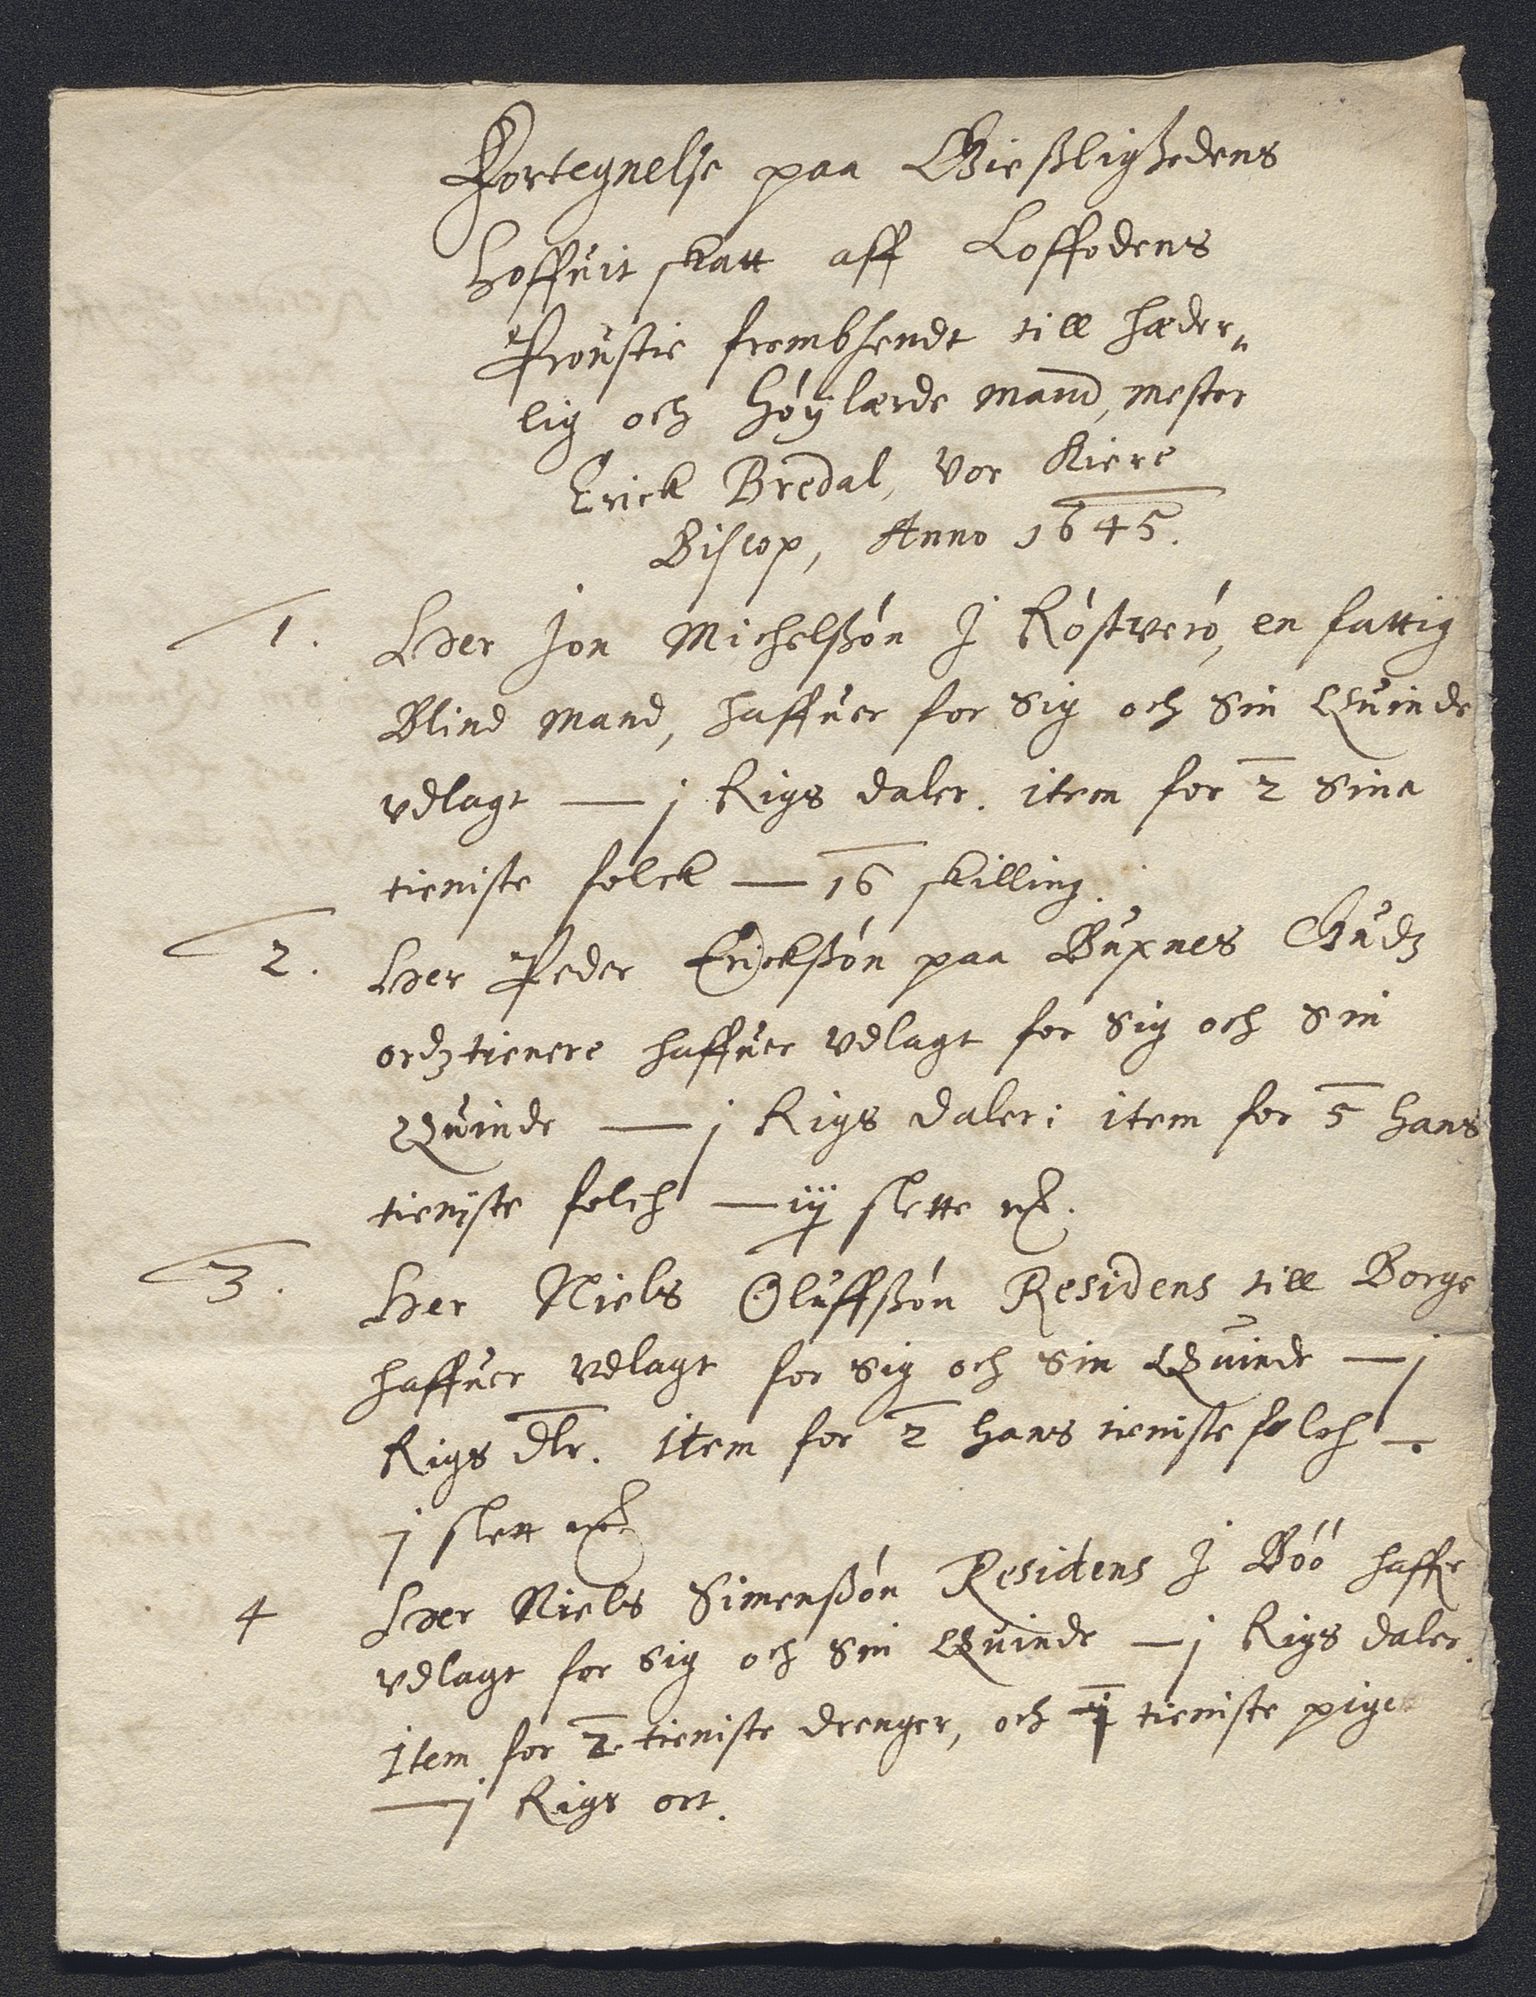 Fortegnelse paa Gieistlighedens
Hoffuit skatt aff Loffodens
Proustie frembsendt till hæder„
lig och Høylærde Mand, Mester
Erick Bredal, Vor Kiere
Biscop, Anno 1645.
1. Her Jon Michelßøn J Røstverø, en fattig
Blind Mand, haffuer for Sig och Sin Quinde
vdlagt — j Rigs daler. item for 2 Sine
tieniste folck — 16 skilling.
2. Her Peder Erickßøn paa Buxnes Gudz
ordz tienere haffuer vdlagt for Sig och Sin
Quinde — j Rigs daler: item for 5 hans
tieniste folch — iij slette mk.
3. Her Niels Oluffßøn Residens till Borge
haffuer vdlagt for Sig och Sin Quinde — j
Rigs dlr. Item for 2 hans tieniste folch —
j slett mk
4 Her Niels Simenßøn Residens J Böö haffr
vdlagt for Sig och Sin Quinde — j Rigs daler.
Item for 2 tieniste drenger, och j tieniste pige
— j Rigs ort.